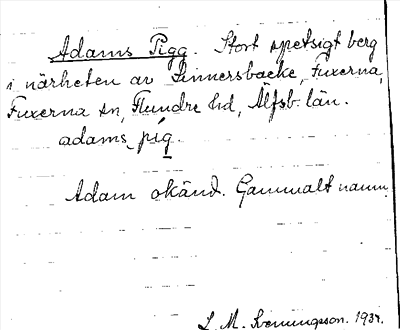 Adams Pigg. Stort spetsigt berg
i närheten av Sinnersbacke, Fuxerna,
Fuxerna sn, Flundre hd, Älfsb. län.
adams pig
Adam okänd. Gammalt namn.
L. M. Svenungsson. 1934.